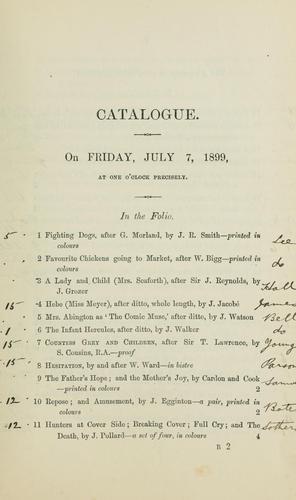 CATALOGUE.
On FRIDAY, JULY 7, 1899,
AT ONE O'CLOCK PRECISELY.
In the Folio.
5 · 1 Fighting Dogs, after G. Morland, by J. R. Smith—printed in Lee
colours
2 Favourite Chickens going to Market, after W. Bigg—printed in do
colours
3 A Lady and Child (Mrs. Seaforth), after Sir J. Reynolds, by Hall
J. Grozer
15 · 4 Hebe (Miss Meyer), after ditto, whole length, by J. Jacobé James
5 Mrs. Abington as 'The Comic Muse,' after ditto, by J. Watson Bell
1 · 6 The Infant Hercules, after ditto, by J. Walker do
15 · 7 COUNTESS GREY AND CHILDREN, after Sir T. Lawrence, by Young
S. Cousins, R.A.—proof
15 · 8 HESITATION, by and after W. Ward—in bistre Parson
9 The Father's Hope; and the Mother's Joy, by Cardon and Cook
—printed in colours 2
12 · 10 Repose; and Amusement, by J. Egginton—a pair, printed in
colours 2
12 · 11 Hunters at Cover Side; Breaking Cover; Full Cry; and The
Death, by J. Pollard—a set of four, in colours 4
B 2